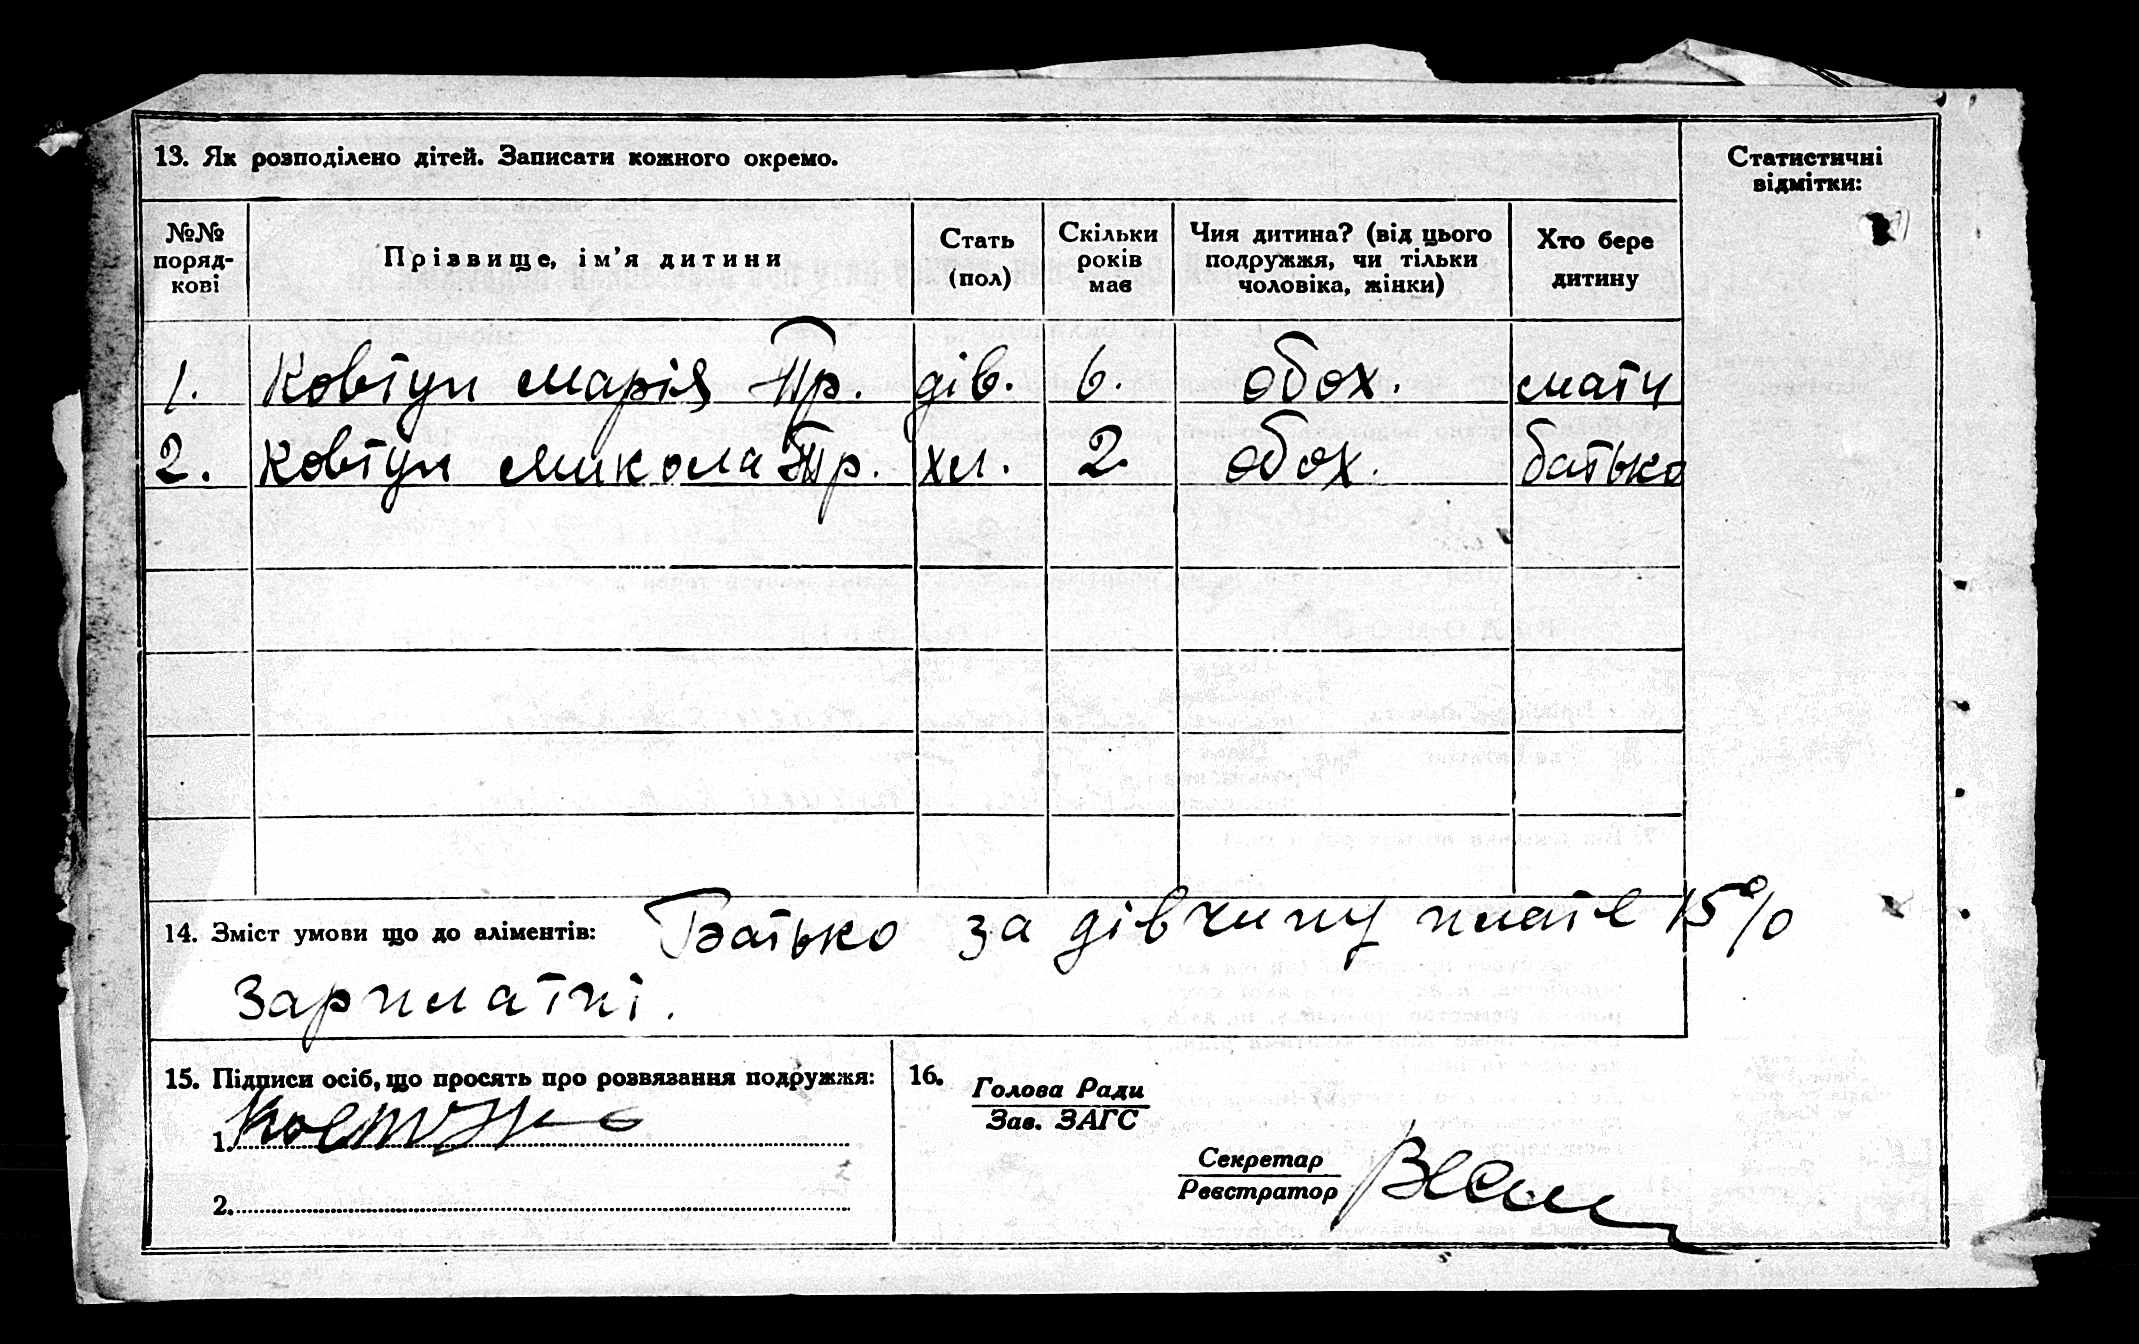 13. Як розподілено дітей. Записати кожного окремо.
Статистичні
відмітки:
№№
поряд-
кові
Прізвище, ім'я дитини
Стать
(пол)
Скільки
років
має
Чия дитина? (від цього
подружжя, чи тільки
чоловіка, жінки)
Хто бере
дитину
1. Ковтун Марія Пр. дів. 6. обох. мати
2. Ковтун Микола Пр. хл. 2 обох. батько
14. Зміст умови що до аліментів: Батько за дівчину плате 15%
зарплатні.
15. Підписи осіб, що просять про розвязання подружжя:
1.
2.
16.
Голова Ради
Зав. ЗАГС
Секретар
Реєстратор